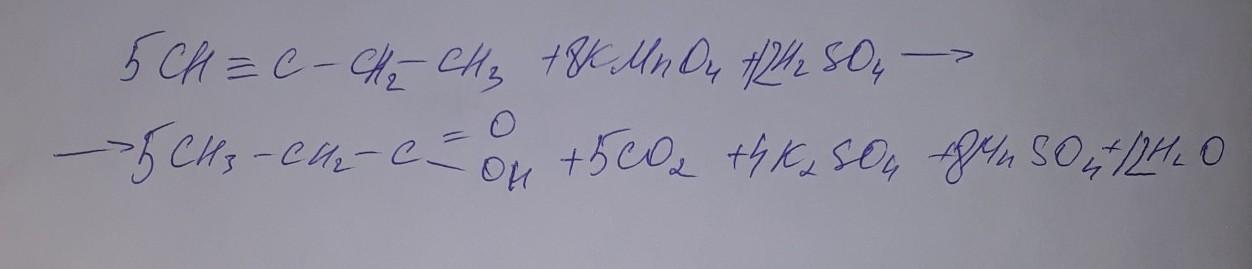 5CH≡C-CH₂-CH₃ +8KMnO₄ +12H₂SO₄ →
→ 5CH₃-CH₂-C=O-OH +5CO₂ +4K₂SO₄ +8MnSO₄+12H₂O